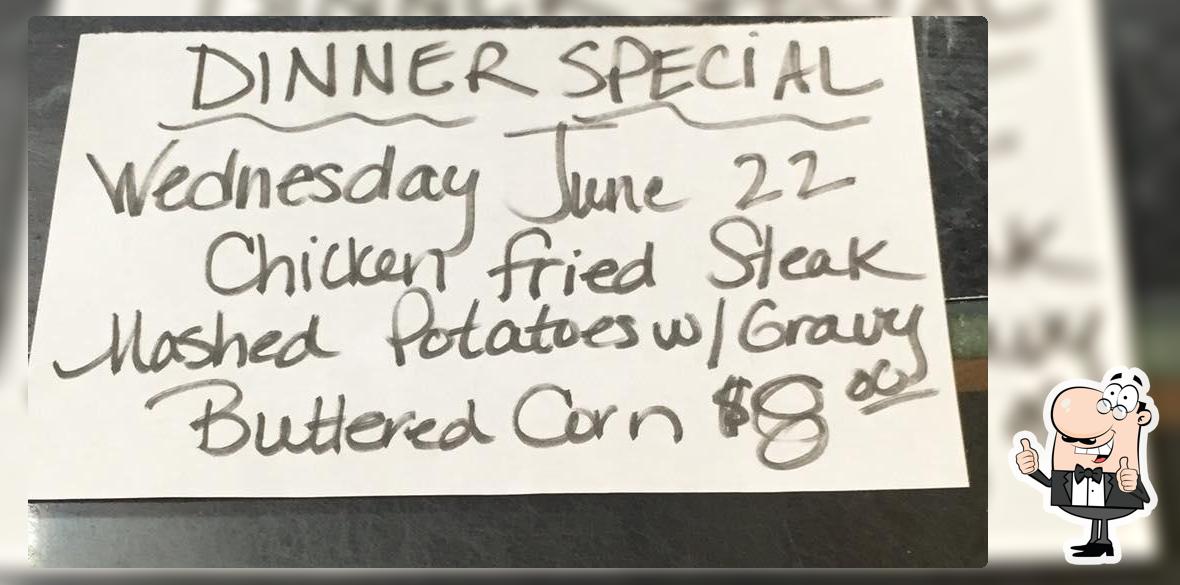 DINNER SPECIAL
Wednesday June 22
Chicken fried Steak
Mashed Potatoes w/ Gravy
Buttered Corn $8.00